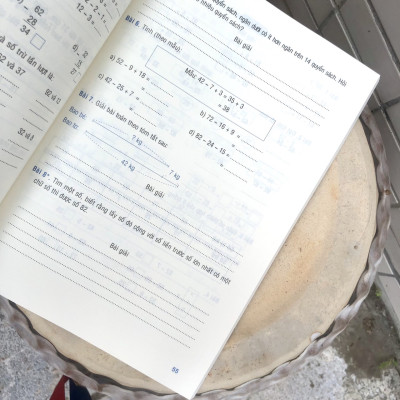 62
28
34
số trừ lần lượt là:
32 và 37
quyển sách, ngăn dưới có ít hơn ngăn trên 14 quyển sách. Hỏi
nhiêu quyển sách?
Bài giải
Bài 6. Tính (theo mẫu):
Mẫu: 42 – 7 + 3 = 35 + 3
= 38
a) 52 – 9 + 18 =
=
b) 72 – 16 + 9 =
=
c) 42 – 25 + 7 =
=
d) 82 – 24 – 15 =
=
Bài 7. Giải bài toán theo tóm tắt sau:
Bao bé:
? kg
Bao to:
7 kg
42 kg
Bài giải
Bài 8*. Tìm một số, biết rằng lấy số đó cộng với số liền trước số lớn nhất có một
chữ số thì được số 82.
Bài giải